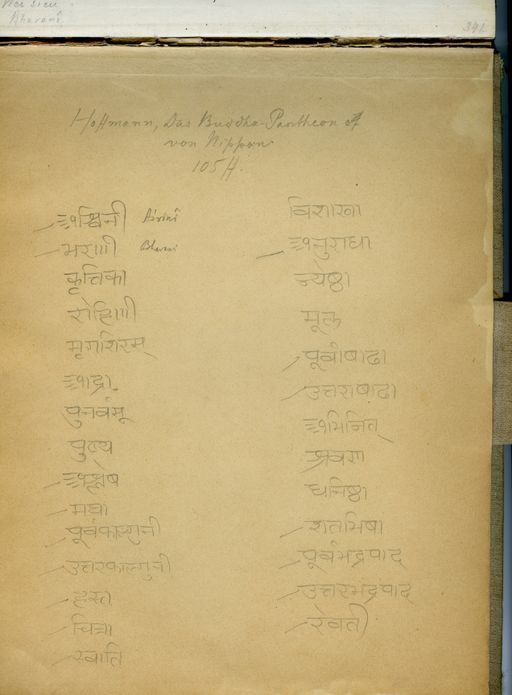 Bharanî
341
Hoffmann, Das Buddha-Pantheon
von Nippon
105 H.
अश्विनी Aśvinî
भरणी Bharani
कृत्तिका
रोहिणी
मृगशिरस्
आद्रा
पुनर्वसू
पुष्य
अश्लेष
मघा
पूर्वफाल्गुनी
उत्तरफाल्गुनी
हस्त
चित्रा
स्वाति
विशाखा
अनुराधा
ज्येष्ठा
मूल
पूर्वाषाढा
उत्तराषाढा
अभिजित्
श्रवण
धनिष्ठा
शतभिषा
पूर्वभद्रपाद
उत्तरभद्रपाद
रेवती